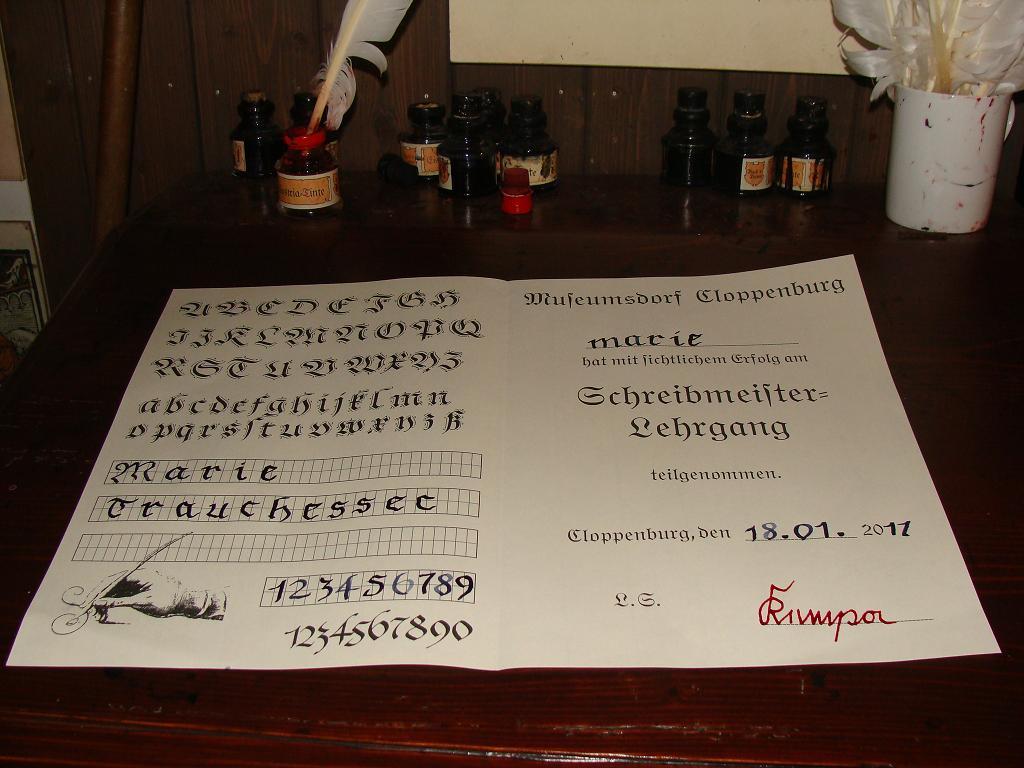 stria-Tinte
A B C D E F G H
I J K L M N O P Q
R S T U V W X Y Z
a b c d e f g h i j k l m n
o p q r s ſ t u v w x y z ß
Marie
Trauchessec
123456789
1234567890
Muſeumsdorf Cloppenburg
marie
hat mit ſichtlichem Erfolg am
Schreibmeiſter=
Lehrgang
teilgenommen.
Cloppenburg, den 18.01. 2017
L.S.